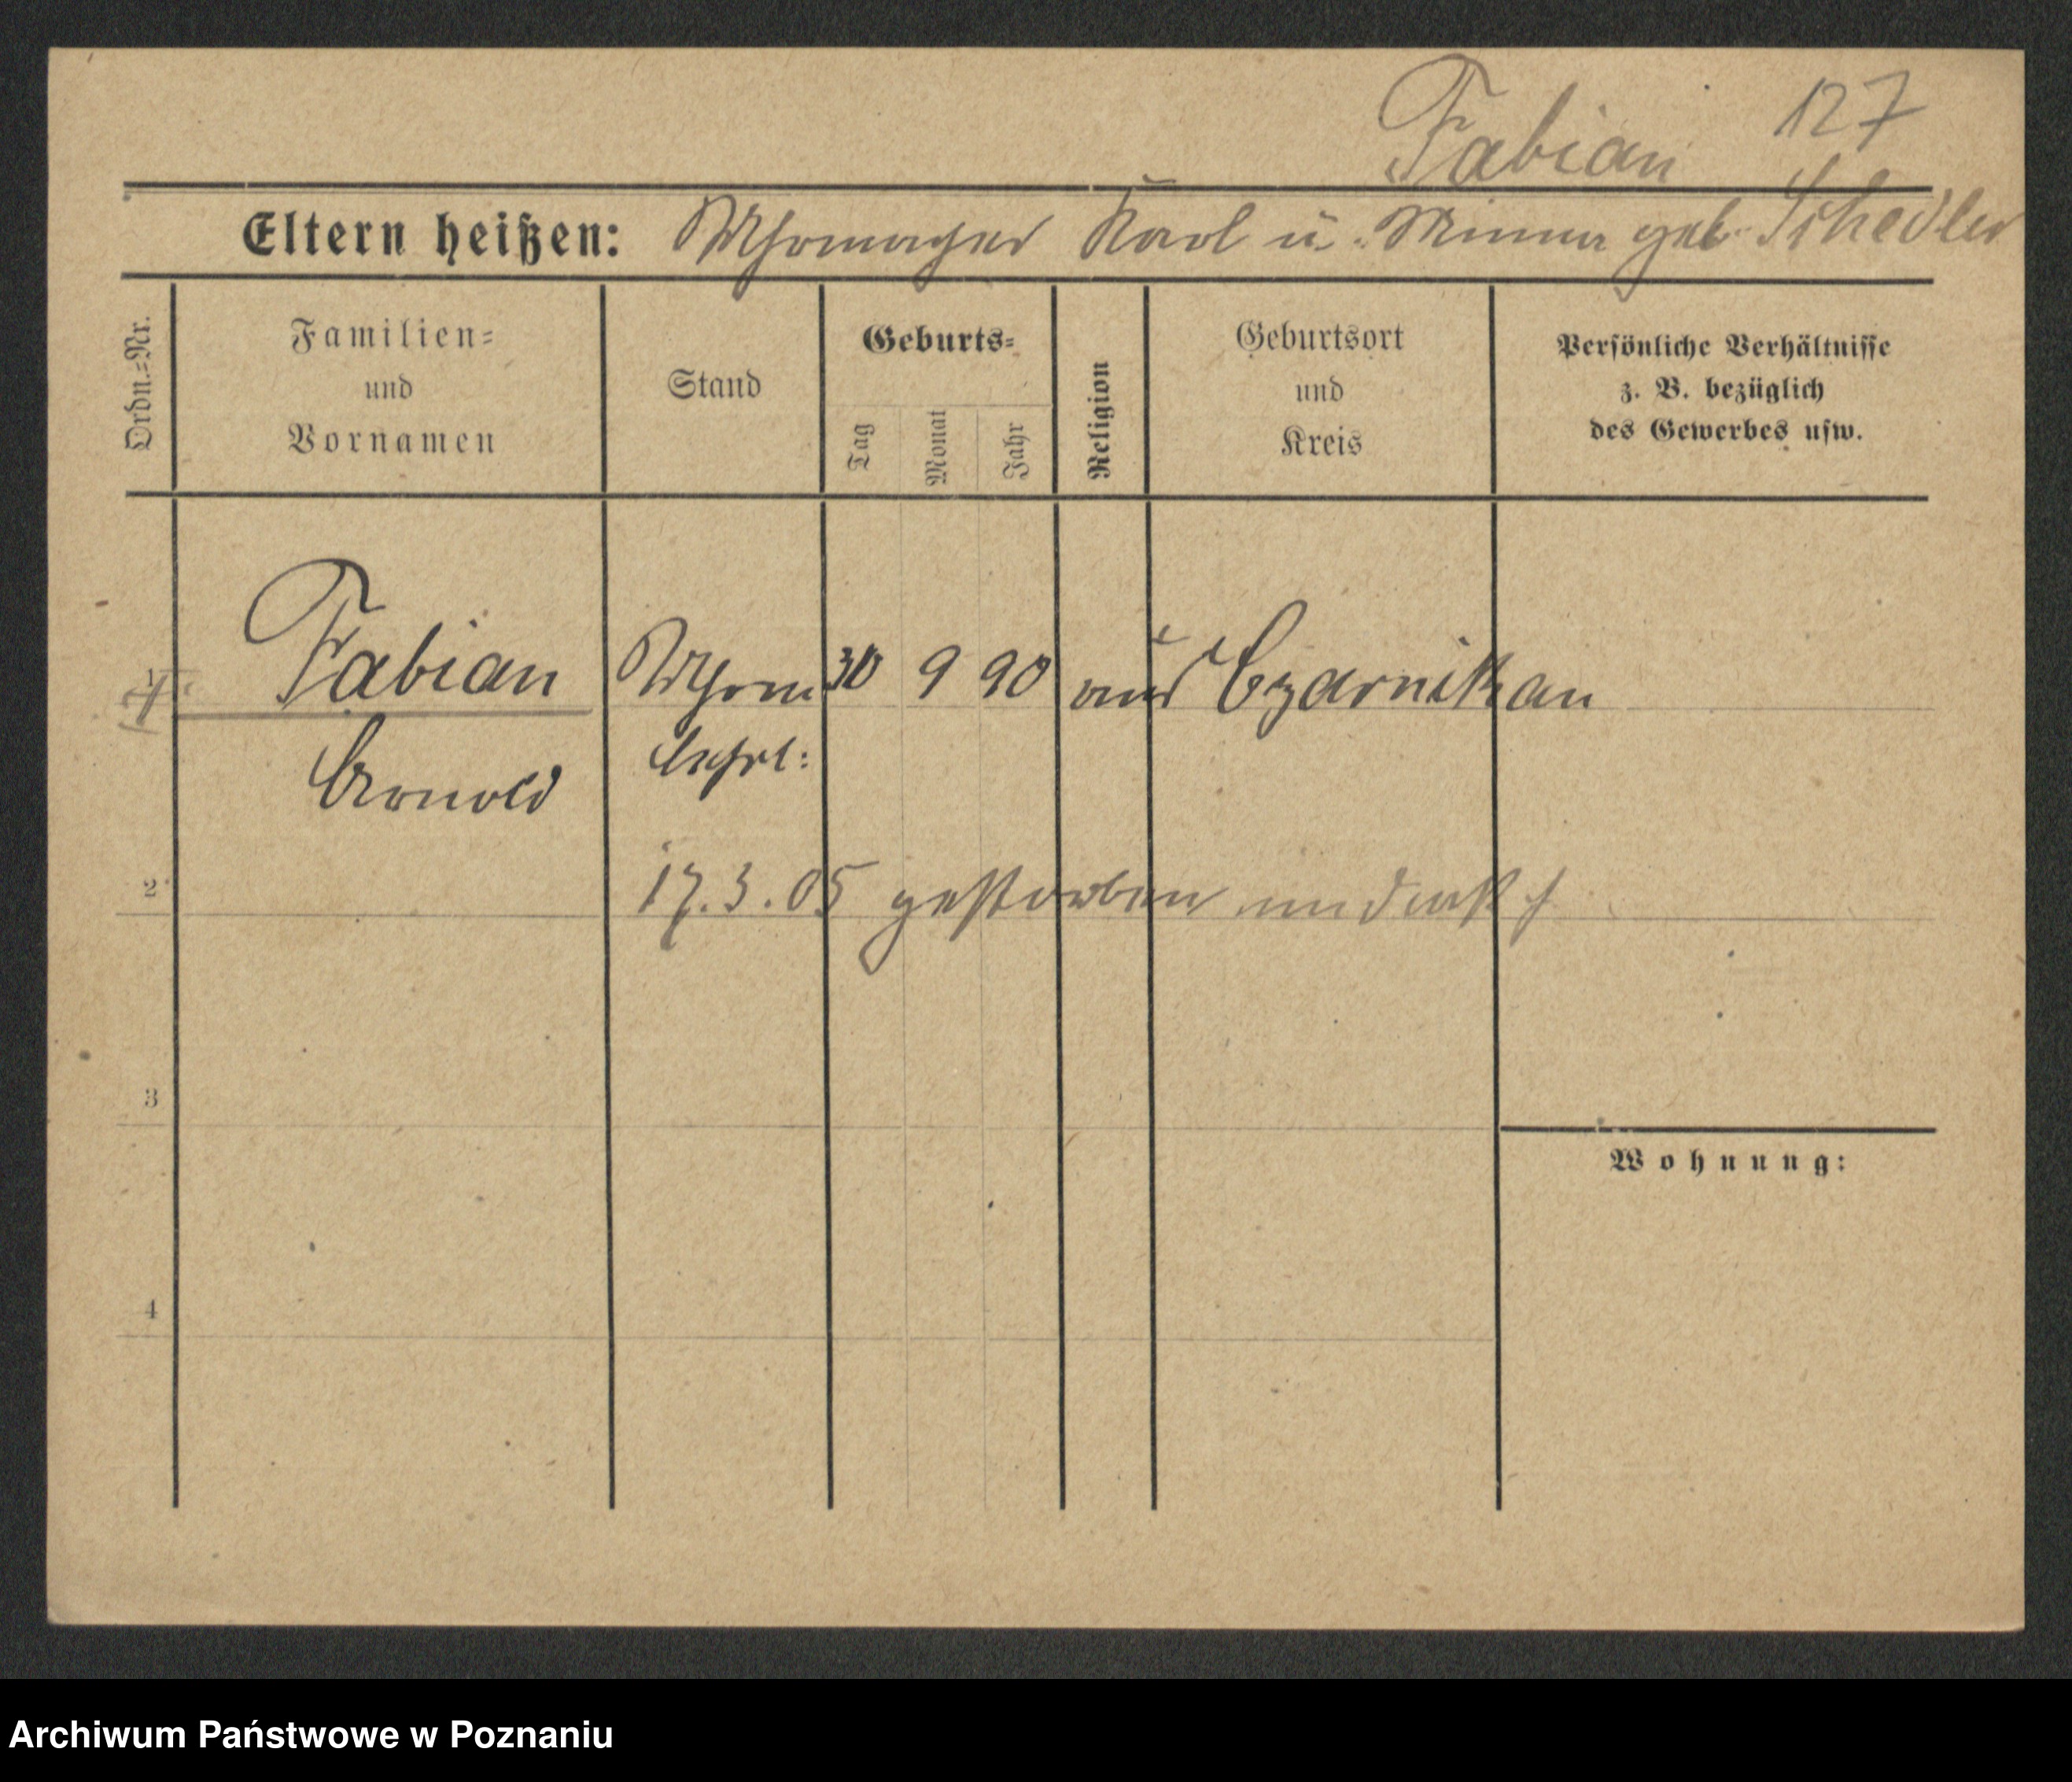 Fabian 127
Eltern heißen: Uhrmacher Karl u. Minna geb. Schedler
Ordn.=Nr.
Familien=
und
Vornamen
Stand
Geburts=
Tag
Monat
Jahr
Religion
Geburtsort
und
Kreis
Persönliche Verhältnisse
z. B. bezüglich
des Gewerbes usw.
1 Fabian Uhrm 30 9 90 aus Czarnikau
Arnold Lehrl:
2 17.3.05 gestorben
3
Wohnung:
4
Archiwum Państwowe w Poznaniu